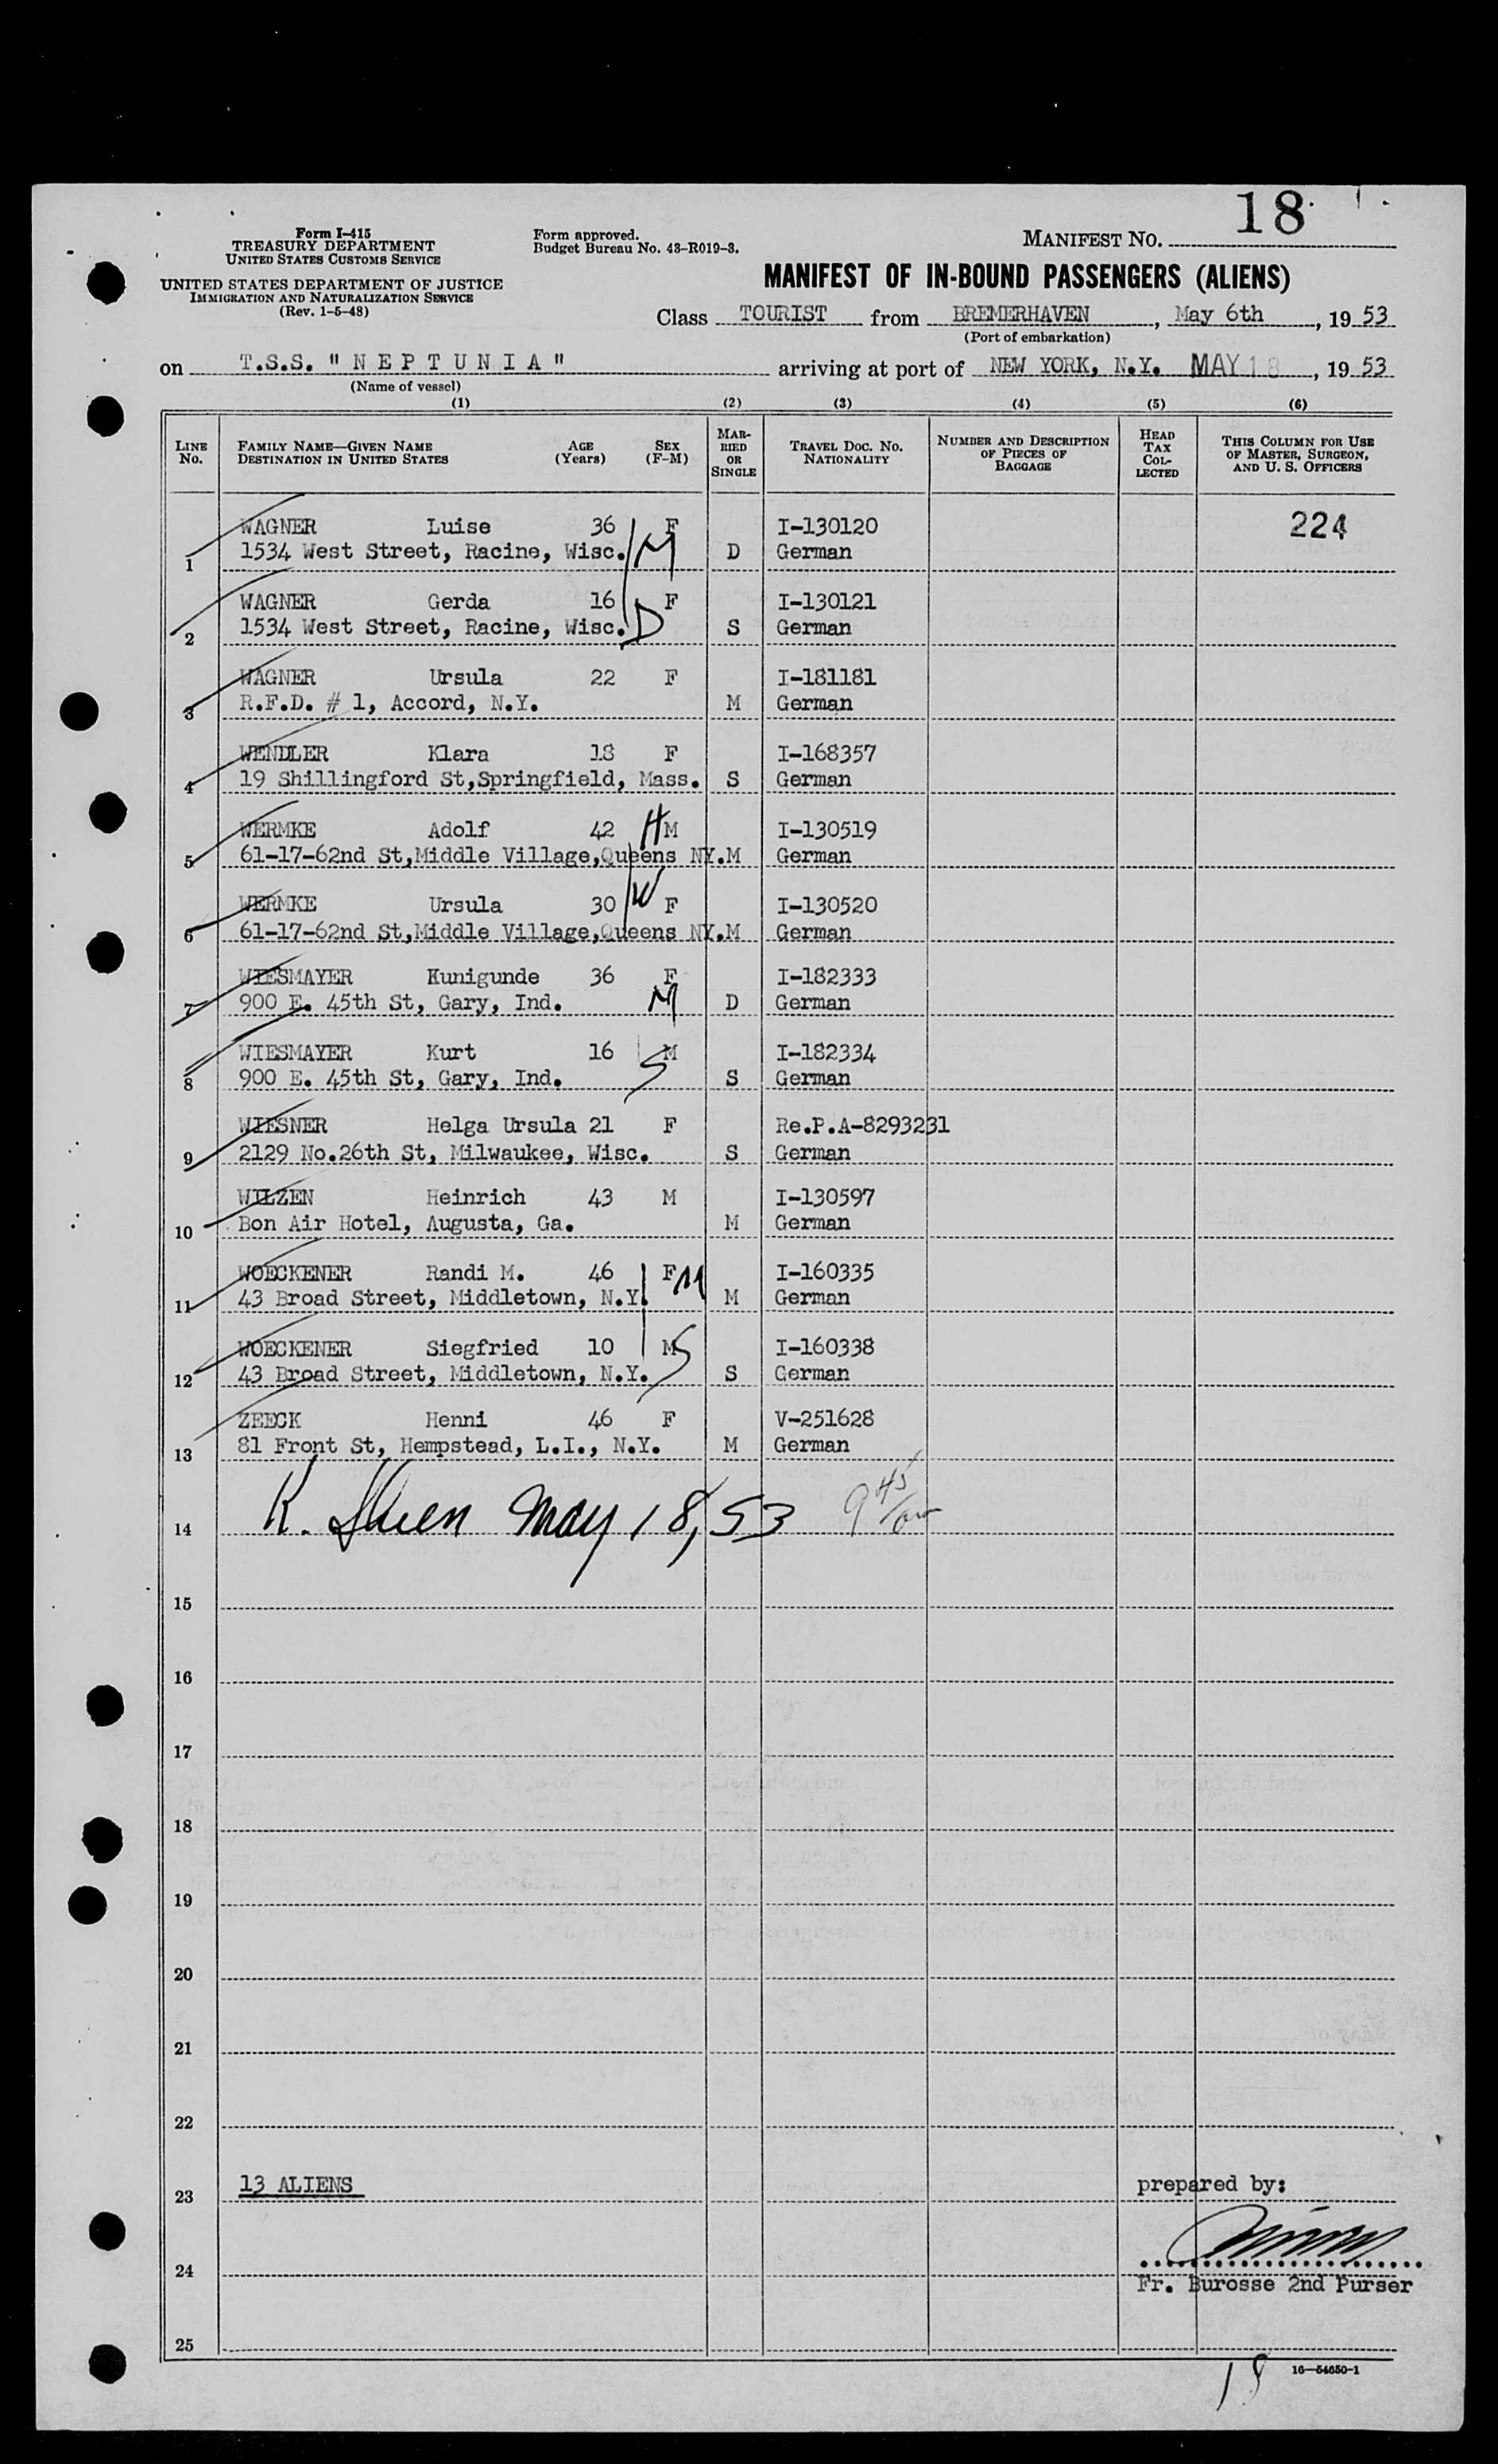 18
Form I-415
TREASURY DEPARTMENT
UNITED STATES CUSTOMS SERVICE
UNITED STATES DEPARTMENT OF JUSTICE
IMMIGRATION AND NATURALIZATION SERVICE
(Rev. 1-5-48)
Form approved.
Budget Bureau No. 43-R019-3.
MANIFEST NO.
MANIFEST OF IN-BOUND PASSENGERS (ALIENS)
Class TOURIST from BREMERHAVEN, May 6th, 19 53
(Port of embarkation)
on T.S.S. " N E P T U N I A " arriving at port of NEW YORK, N.Y. MAY 18, 19 53
(Name of vessel)
(1) (2) (3) (4) (5) (6)
LINE No.
FAMILY NAME—GIVEN NAME AGE (Years) SEX (F-M)
DESTINATION IN UNITED STATES
MARRIED OR SINGLE
TRAVEL DOC. NO. NATIONALITY
NUMBER AND DESCRIPTION OF PIECES OF BAGGAGE
HEAD TAX COLLECTED
THIS COLUMN FOR USE OF MASTER, SURGEON, AND U. S. OFFICERS
WAGNER Luise 36 F I-130120 224
1 1534 West Street, Racine, Wisc. M D German
WAGNER Gerda 16 F I-130121
2 1534 West Street, Racine, Wisc. D S German
WAGNER Ursula 22 F I-181181
3 R.F.D. # 1, Accord, N.Y. M German
WENDLER Klara 18 F I-168357
4 19 Shillingford St,Springfield, Mass. S German
WERMKE Adolf 42 H M I-130519
5 61-17-62nd St,Middle Village,Queens NY. M German
WERMKE Ursula 30 W F I-130520
6 61-17-62nd St,Middle Village,Queens NY. M German
WIESMAYER Kunigunde 36 F I-182333
7 900 E. 45th St, Gary, Ind. M D German
WIESMAYER Kurt 16 M I-182334
8 900 E. 45th St, Gary, Ind. S S German
WIESNER Helga Ursula 21 F Re.P.A-8293231
9 2129 No.26th St, Milwaukee, Wisc. S German
WILZEN Heinrich 43 M I-130597
10 Bon Air Hotel, Augusta, Ga. M German
WOECKENER Randi M. 46 F M I-160335
11 43 Broad Street, Middletown, N.Y. M German
WOECKENER Siegfried 10 M S I-160338
12 43 Broad Street, Middletown, N.Y. S German
ZEECK Henni 46 F V-251628
13 81 Front St, Hempstead, L.I., N.Y. M German
14 K. May 18, 53 9 45
15
16
17
18
19
20
21
22
23 13 ALIENS prepared by:
24
Fr. Burosse 2nd Purser
25
16—54650-1
18